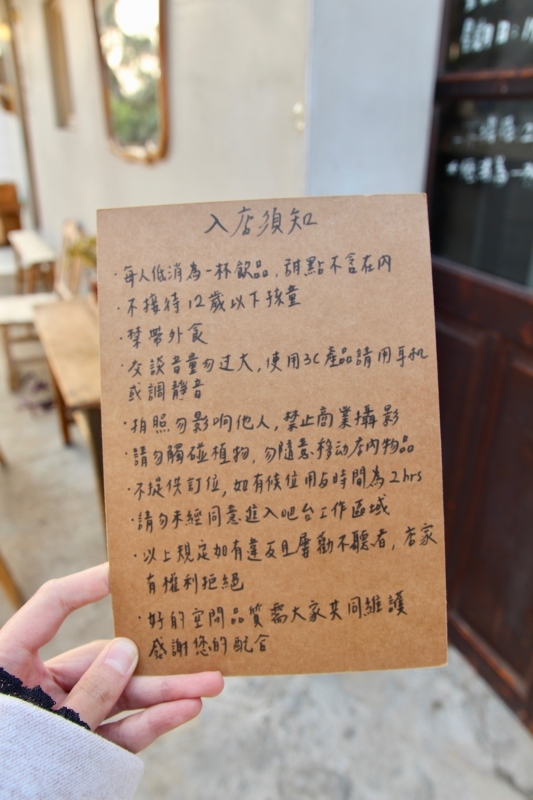 入店須知
·每人低消為一杯飲品,甜點不含在內
·不接待12歲以下孩童
·禁帶外食
·交談音量勿过大,使用3C產品請用耳机
或調靜音
·拍照勿影响他人,禁止商業攝影
·請勿觸碰植物,勿隨意移动店内物品
·不提供訂位,如有候位用餐時間為2hrs
·請勿未經同意進入吧台工作區域
·以上規定如有違反且屢勸不聽者,店家
有權利拒絕
·好的空間品質需大家共同維護
感謝您的配合